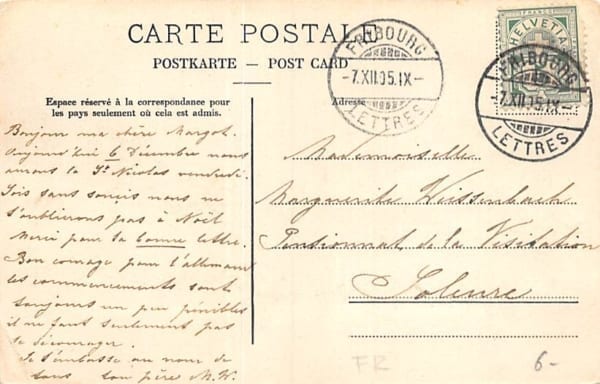 CARTE POSTALE
POSTKARTE — POST CARD
Espace réservé à la correspondance pour
les pays seulement où cela est admis.
Adresse
FRIBOURG
-7.XII.05.IX-
LETTRES
HELVETIA
FRANCO
FRIBOURG
-7.XII.05.IX-
LETTRES
Bonjour ma chère Margot.
Aujourd'hui 6 Décembre nous
aurons la St Nicolas vendredi.
Sois sans soucis nous ne
t'oublierons pas à Noël
Merci pour ta bonne lettre.
Bon courage pour l'allemand
les commencements sont
toujours un peu pénibles
il ne faut seulement pas
se décourager.
Je t'embrasse au nom de
tous ton père M.W.
Mademoiselle
Marguerite Wissenbach
Pensionnat de la Visitation
Soleure
FR
6-